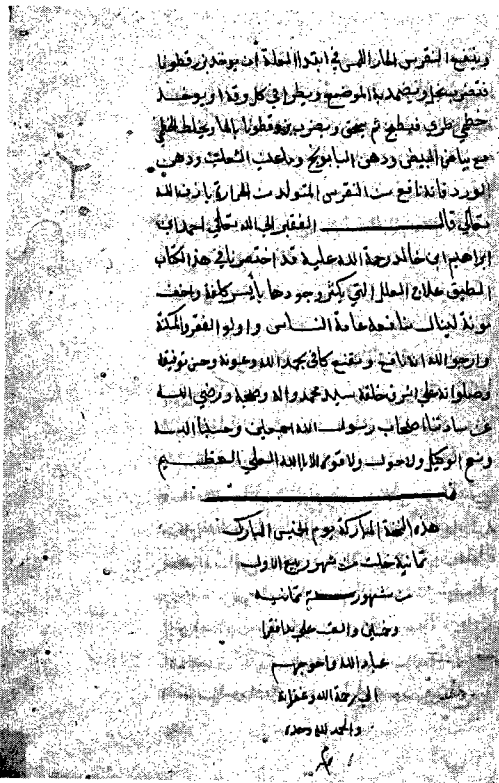 وينفع النقرس الحار اللمس في ابتدا العلة ان يوخذ بزر قطونا
فتضرب بخل وتضمد به الموضع ويطرا في كل وقت او يوخذ
خطمي طري فيطبخ ثم يدق ويضرب بزر قطونا بالما ويخلط الخطمي
مع بياض البيض ودهن البابونج وما عنب الثعلب ودهن
الورد فانه نافع من النقرس المتولد من الحرارة باذن الله
تعالى قال الفقير الى الله تعالى احمد بن
ابراهيم ابن خالد رحمة الله عليه قد اختصرنا في هذا الكتاب
اللطيف علاج العلل التي يكثر وجودها بأيسر كلفة واخف
مونة لينال منافعه عامة الناس واولوا الفقر والمسكنة
وارجو الله انه نافع ومقنع كافي بحمد الله وعونه وحسن توفيقه
وصلواته على اشرف خلقه سيدنا محمد واله وصحبه ورضي الله
عن ساداتنا اصحاب رسول الله اجمعين وحسبنا الله
ونعم الوكيل ولا حول ولا قوة الا بالله العلي العظيم
هذه النسخة المباركة يوم الخميس المبارك
ثمانية خلت من شهر ربيع الاول
من شهور سنه ثمانيه
وخمسين والف على يد افقر
عباد الله واحوجهم
الى رحمة الله وغفرانه
والحمد لله وحده
م